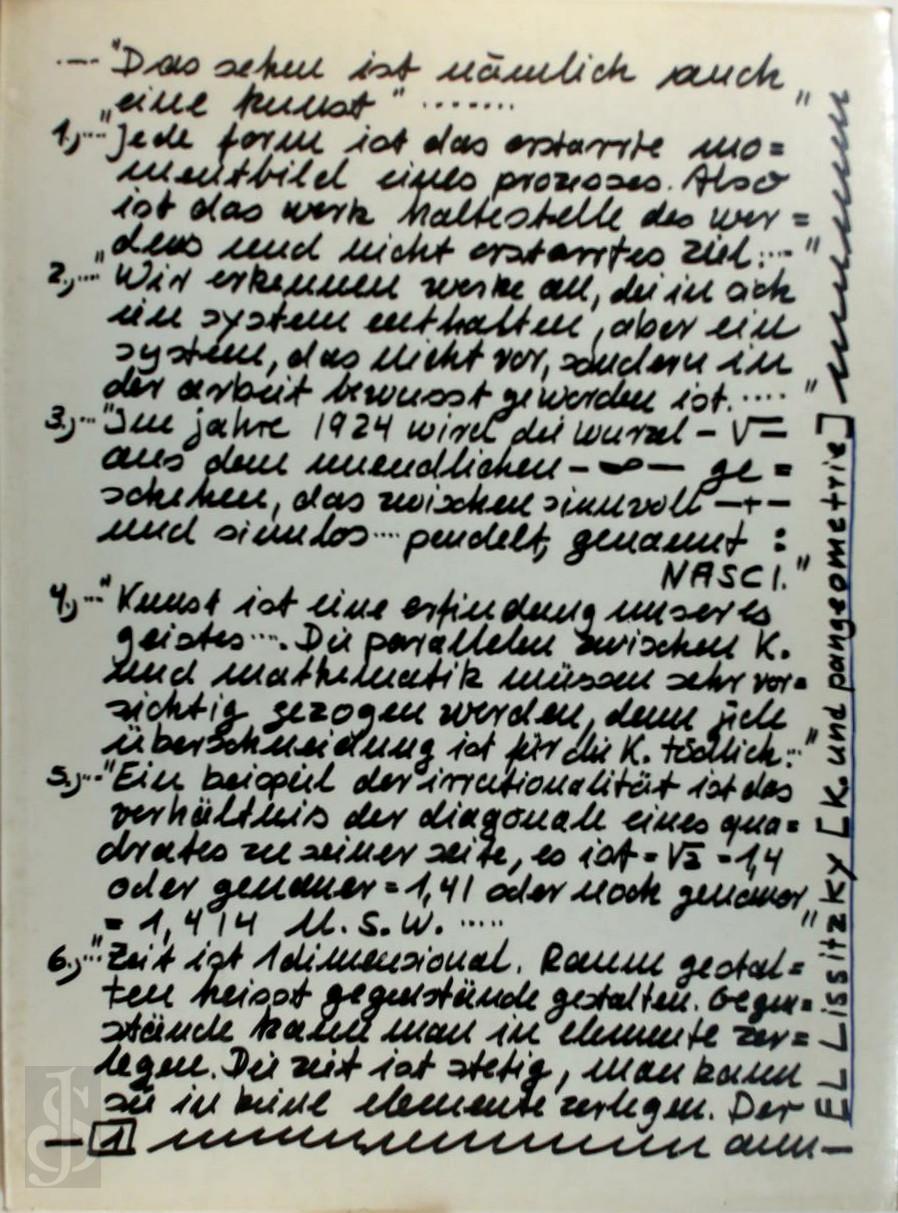 .--- "Das sehen ist nämlich auch
"eine kunst" ....... "
1.,..."Jede form ist das erstarrte mo=
mentbild eines prozesses. Also
ist das werk haltestelle des wer=
dens und nicht erstarrtes ziel...."
2.,...."Wir erkennen werke an, die in sich
ein system enthalten, aber ein
system, das nicht vor, sondern in
der arbeit bewusst geworden ist....."
3.,..."Im jahre 1924 wird die wurzel - √ -
aus dem unendlichen - ∞ - ge=
schehen, das zwischen sinnvoll - + -
und sinnlos .... pendelt, genannt :
NASCI."
4.,..."Kunst ist eine erfindung unseres
geistes.... Die parallelen zwischen K.
und mathematik müssen sehr vor=
sichtig gezogen werden, denn jede
überschneidung ist für die K. tödlich..."
5.,..."Ein beispiel der irrationalität ist das
verhältnis der diagonale eines qua=
drates zu seiner seite, es ist = √2 = 1,4
oder genauer = 1,41 oder noch genauer
= 1,414 U.S.W. ..... "
6.,..."Zeit ist 1dimensional. Raum gestal=
ten heisst gegenstände gestalten. Gegen=
stände kann man in elemente zer=
legen. Die zeit ist stetig, man kann
sie in keine elemente zerlegen. Der
1
EL Lissitzky [K. und pangeometrie]